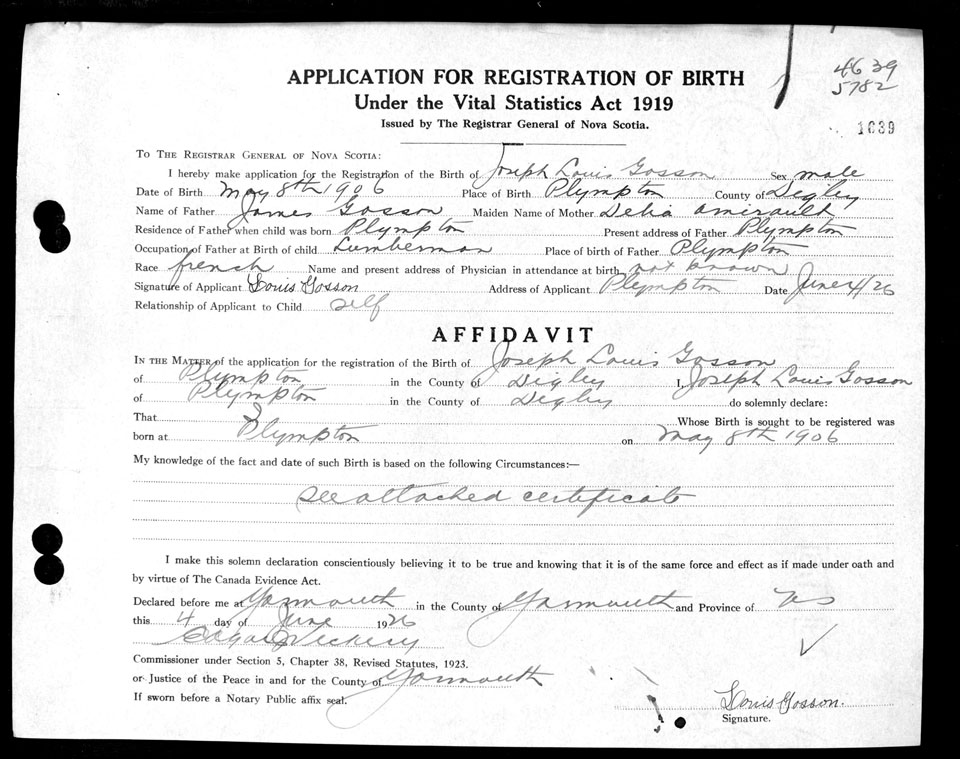 APPLICATION FOR REGISTRATION OF BIRTH
4639
Under the Vital Statistics Act 1919
5782
Issued by The Registrar General of Nova Scotia.
1639
TO THE REGISTRAR GENERAL OF NOVA SCOTIA:
I hereby make application for the Registration of the Birth of Joseph Louis Gosson Sex male
Date of Birth May 8th 1906 Place of Birth Plympton County of Digby
Name of Father James Gosson Maiden Name of Mother Delia Amirault
Residence of Father when child was born Plympton Present address of Father Plympton
Occupation of Father at Birth of child Lumberman Place of birth of Father Plympton
Race french Name and present address of Physician in attendance at birth not known
Signature of Applicant Louis Gosson Address of Applicant Plympton Date June 4/26
Relationship of Applicant to Child self
AFFIDAVIT
IN THE MATTER of the application for the registration of the Birth of Joseph Louis Gosson
of Plympton in the County of Digby I, Joseph Louis Gosson
of Plympton in the County of Digby do solemnly declare:
That I Whose Birth is sought to be registered was
born at Plympton on May 8th 1906
My knowledge of the fact and date of such Birth is based on the following Circumstances:—
see attached certificate
I make this solemn declaration conscientiously believing it to be true and knowing that it is of the same force and effect as if made under oath and
by virtue of The Canada Evidence Act.
Declared before me at Yarmouth in the County of Yarmouth and Province of NS
this 4 day of June 1926
Commissioner under Section 5, Chapter 38, Revised Statutes, 1923.
or Justice of the Peace in and for the County of Yarmouth
If sworn before a Notary Public affix seal.
Louis Gosson.
Signature.